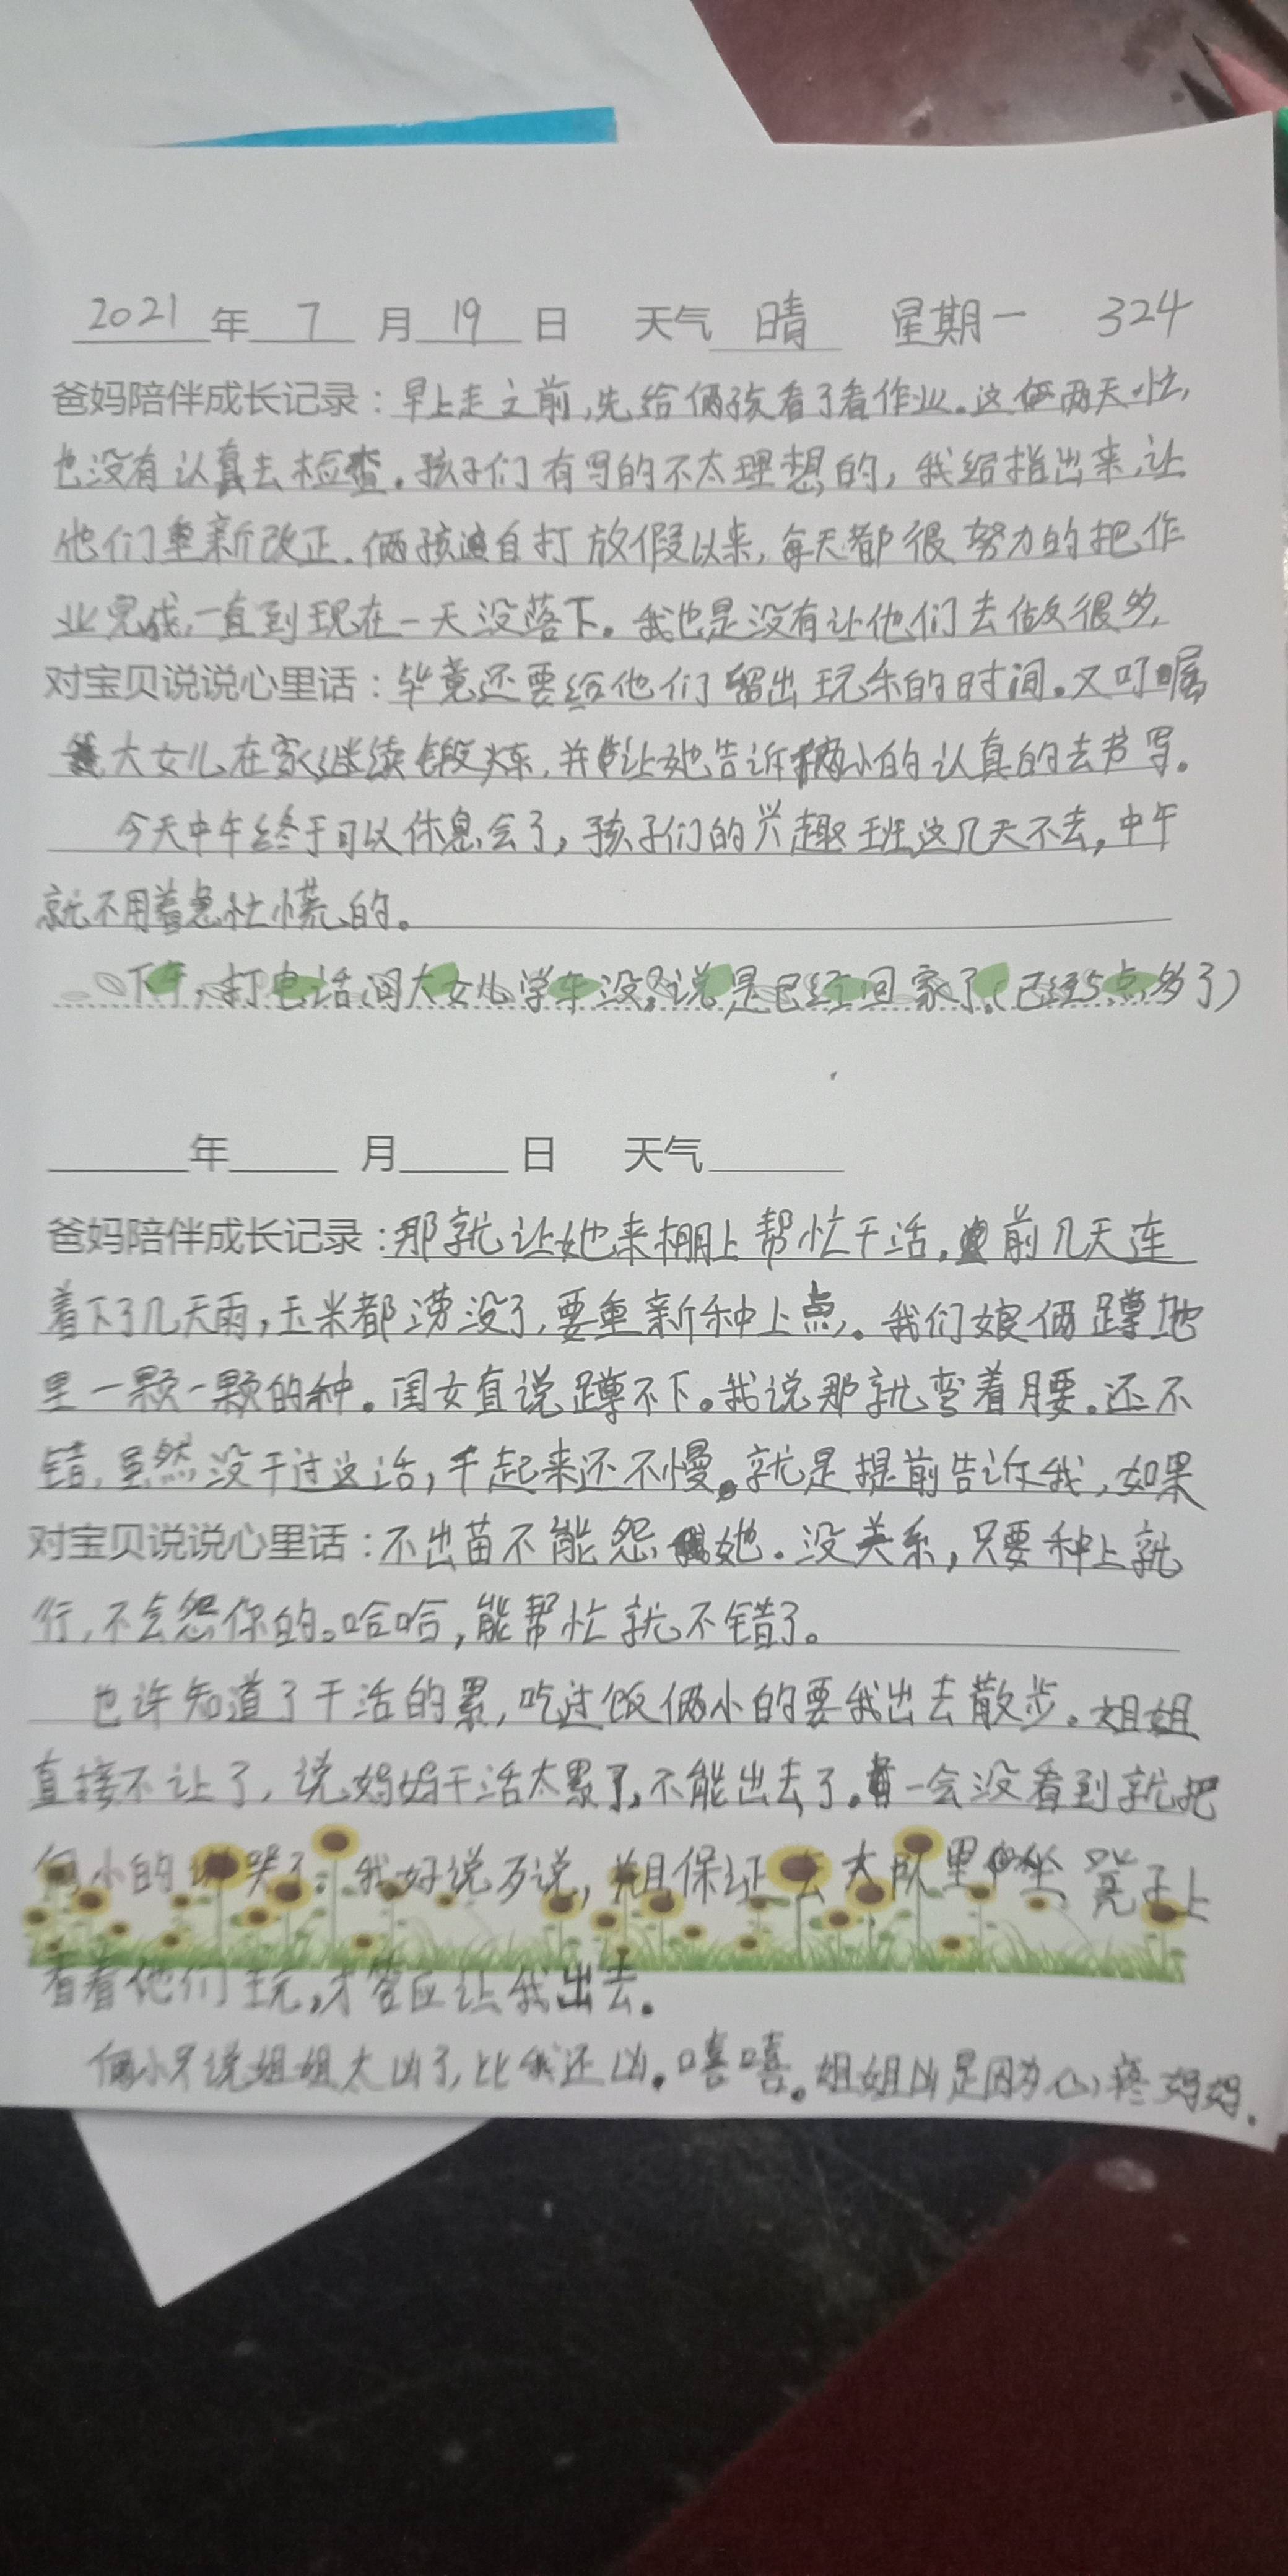 2021年 7 月 19 日 天气 晴 星期一 324
爸妈陪伴成长记录：早上走之前，先给俩孩看了看作业。这俩两天忙，
也没有认真去检查。孩子们有写的不太理想的，我给指出来，让
他们重新改正。俩孩自打放假以来，每天都很努力的把作
业完成，一直到现在一天没落下。我也是没有让他们去做很多，
对宝贝说说心里话：毕竟还要给他们留出玩乐的时间。又叮嘱
大女儿在家继续锻炼，并让她告诉俩小的认真的去书写。
今天中午终于可以休息会了，孩子们的兴趣班这几天不去，中午
就不用着急忙慌的。
下午，打电话问大女儿学车没？说是已经回家了。（已经5点多了）
年 月 日 天气
爸妈陪伴成长记录：那就让她来棚上帮忙干活。前几天连
着下了几天雨，玉米都涝没了，要重新种上点。我们娘俩蹲地
里一颗一颗的种。闺女直说蹲不下。我说那就弯着腰。还不
错，虽然没干过这活，干起来还不慢。就是提前告诉我，如果
对宝贝说说心里话：不出苗不能怨她。没关系，只要种上就
行，不会怨你的。哈哈，能帮忙就不错了。
也许知道了干活的累，吃过饭俩小的要我出去散步。姐姐
直接不让了，说妈妈干活太累了，不能出去了。一会没看到就把
俩小的哭了。我好说歹说，并且保证去大队里坐凳子上
看着他们玩，才答应让我出去。
俩小只说姐姐太凶了，比我还凶。嘻嘻。姐姐凶是因为心疼妈妈。